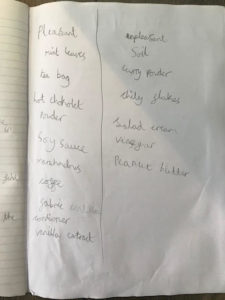 Pleasant
mint leaves
tea bag
hot chocholet
Powder
Soy Sauce
coffee
conditioner
vanilla extract
unpleasant
Soil
curry powder
chilly flakes
Salad cream
vinegar
Peanut butter